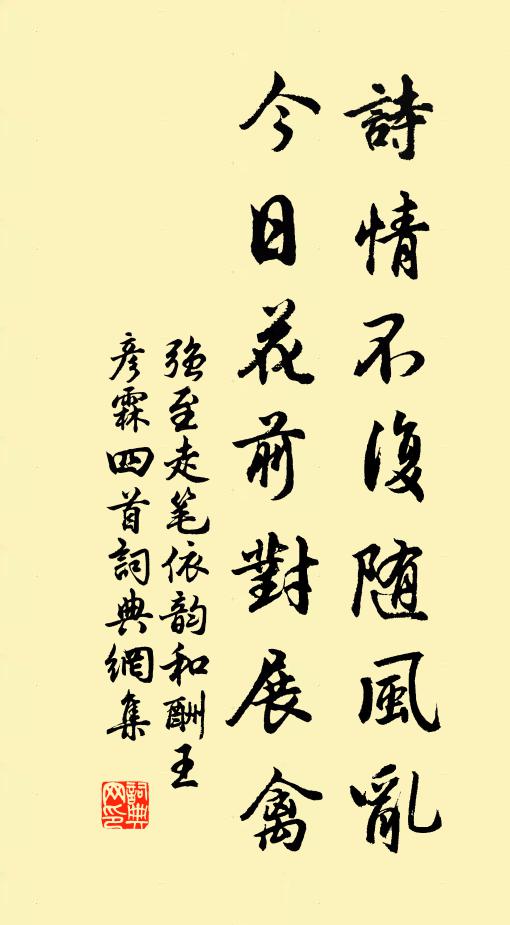 詩情不復随風亂
今日花前對展禽
强至走笔依韵和酬王
彦霖四首詞典網集
詞典网印